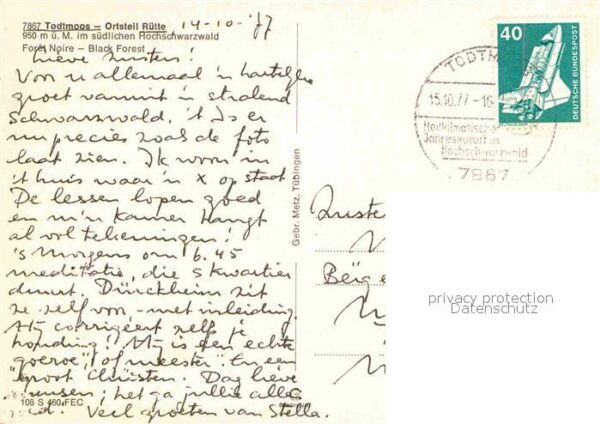 7867 Todtmoos – Ortsteil Rütte
14-10-'77
950 m ü. M. im südlichen Hochschwarzwald
Forêt Noire – Black Forest
lieve zusters!
Voor u allemaal 'n hartelijke
groet vanuit 'n stralend
Schwarzwald, 't is er
nu precies zoals de foto
laat zien. Ik woon in
't huis waar 'n x op staat
De lessen lopen goed
en m'n kamer hangt
al vol tekeningen!
's Morgens om 6.45
meditatie, die 5 kwartier
duurt. Dürckheim zit
ze zelf voor, met inleiding.
Hij corrigeert zelf je
houding! Hij is een echte
"goeroe" of meester" En een
"groot Christen. Dag lieve
mensen; het ga jullie alle
Veel groeten van Stella.
106 S 460 FEC
Gebr. Metz, Tübingen
40
DEUTSCHE BUNDESPOST
TODTM
15.10.77-16
Heilklimatische
Jahreskurort im
Hochschwarzwald
7867
Zuste
privacy protection
Datenschutz